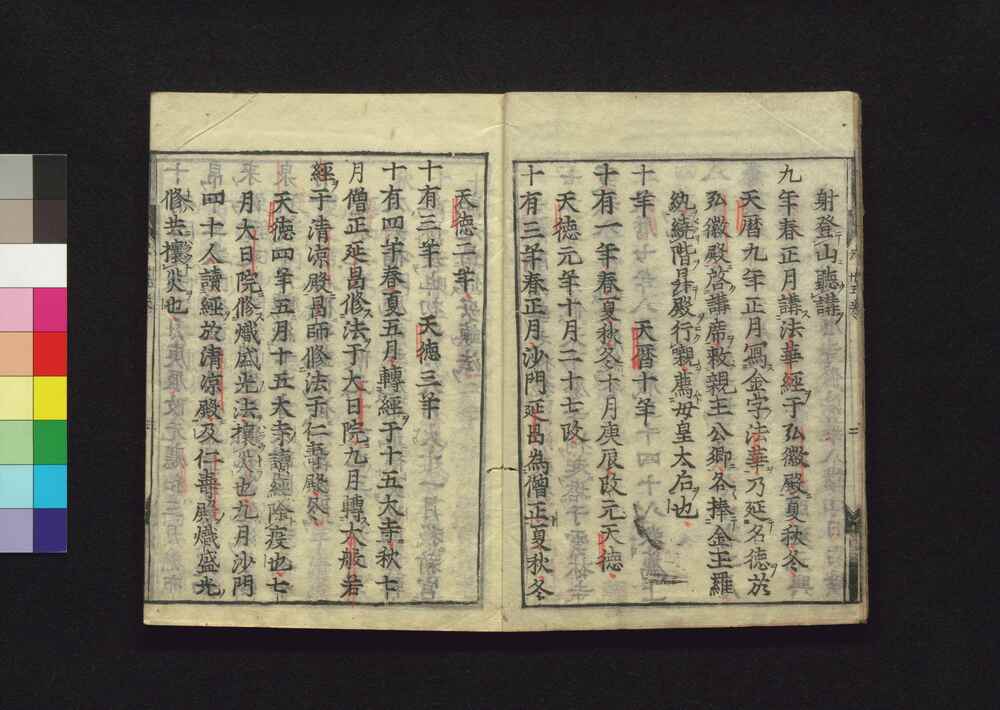 射登山聽講
九年春正月講法華經于弘徽殿夏秋冬
天曆九年正月寫金字法華乃延名德於
弘徽殿啓講席敕親王公卿各捧金玉羅
紈繞階昇殿行襯薦母皇太后也
十年　　　　天曆十年
十有一年春夏秋冬十月庚辰改元天德
天德元年十月二十七改
十有二年春正月沙門延昌為僧正夏秋冬
天德二年
十有三年　　天德三年
十有四年春夏五月轉經于十五大寺秋七
月僧正延昌修法于大日院九月轉大般若
經于清凉殿昌師修法于仁壽殿冬
天德四年五月十五大寺讀經除疫也七
月大日院修熾盛光法攘災也九月沙門
四十人讀經於清凉殿及仁壽殿熾盛光
修共攘災也